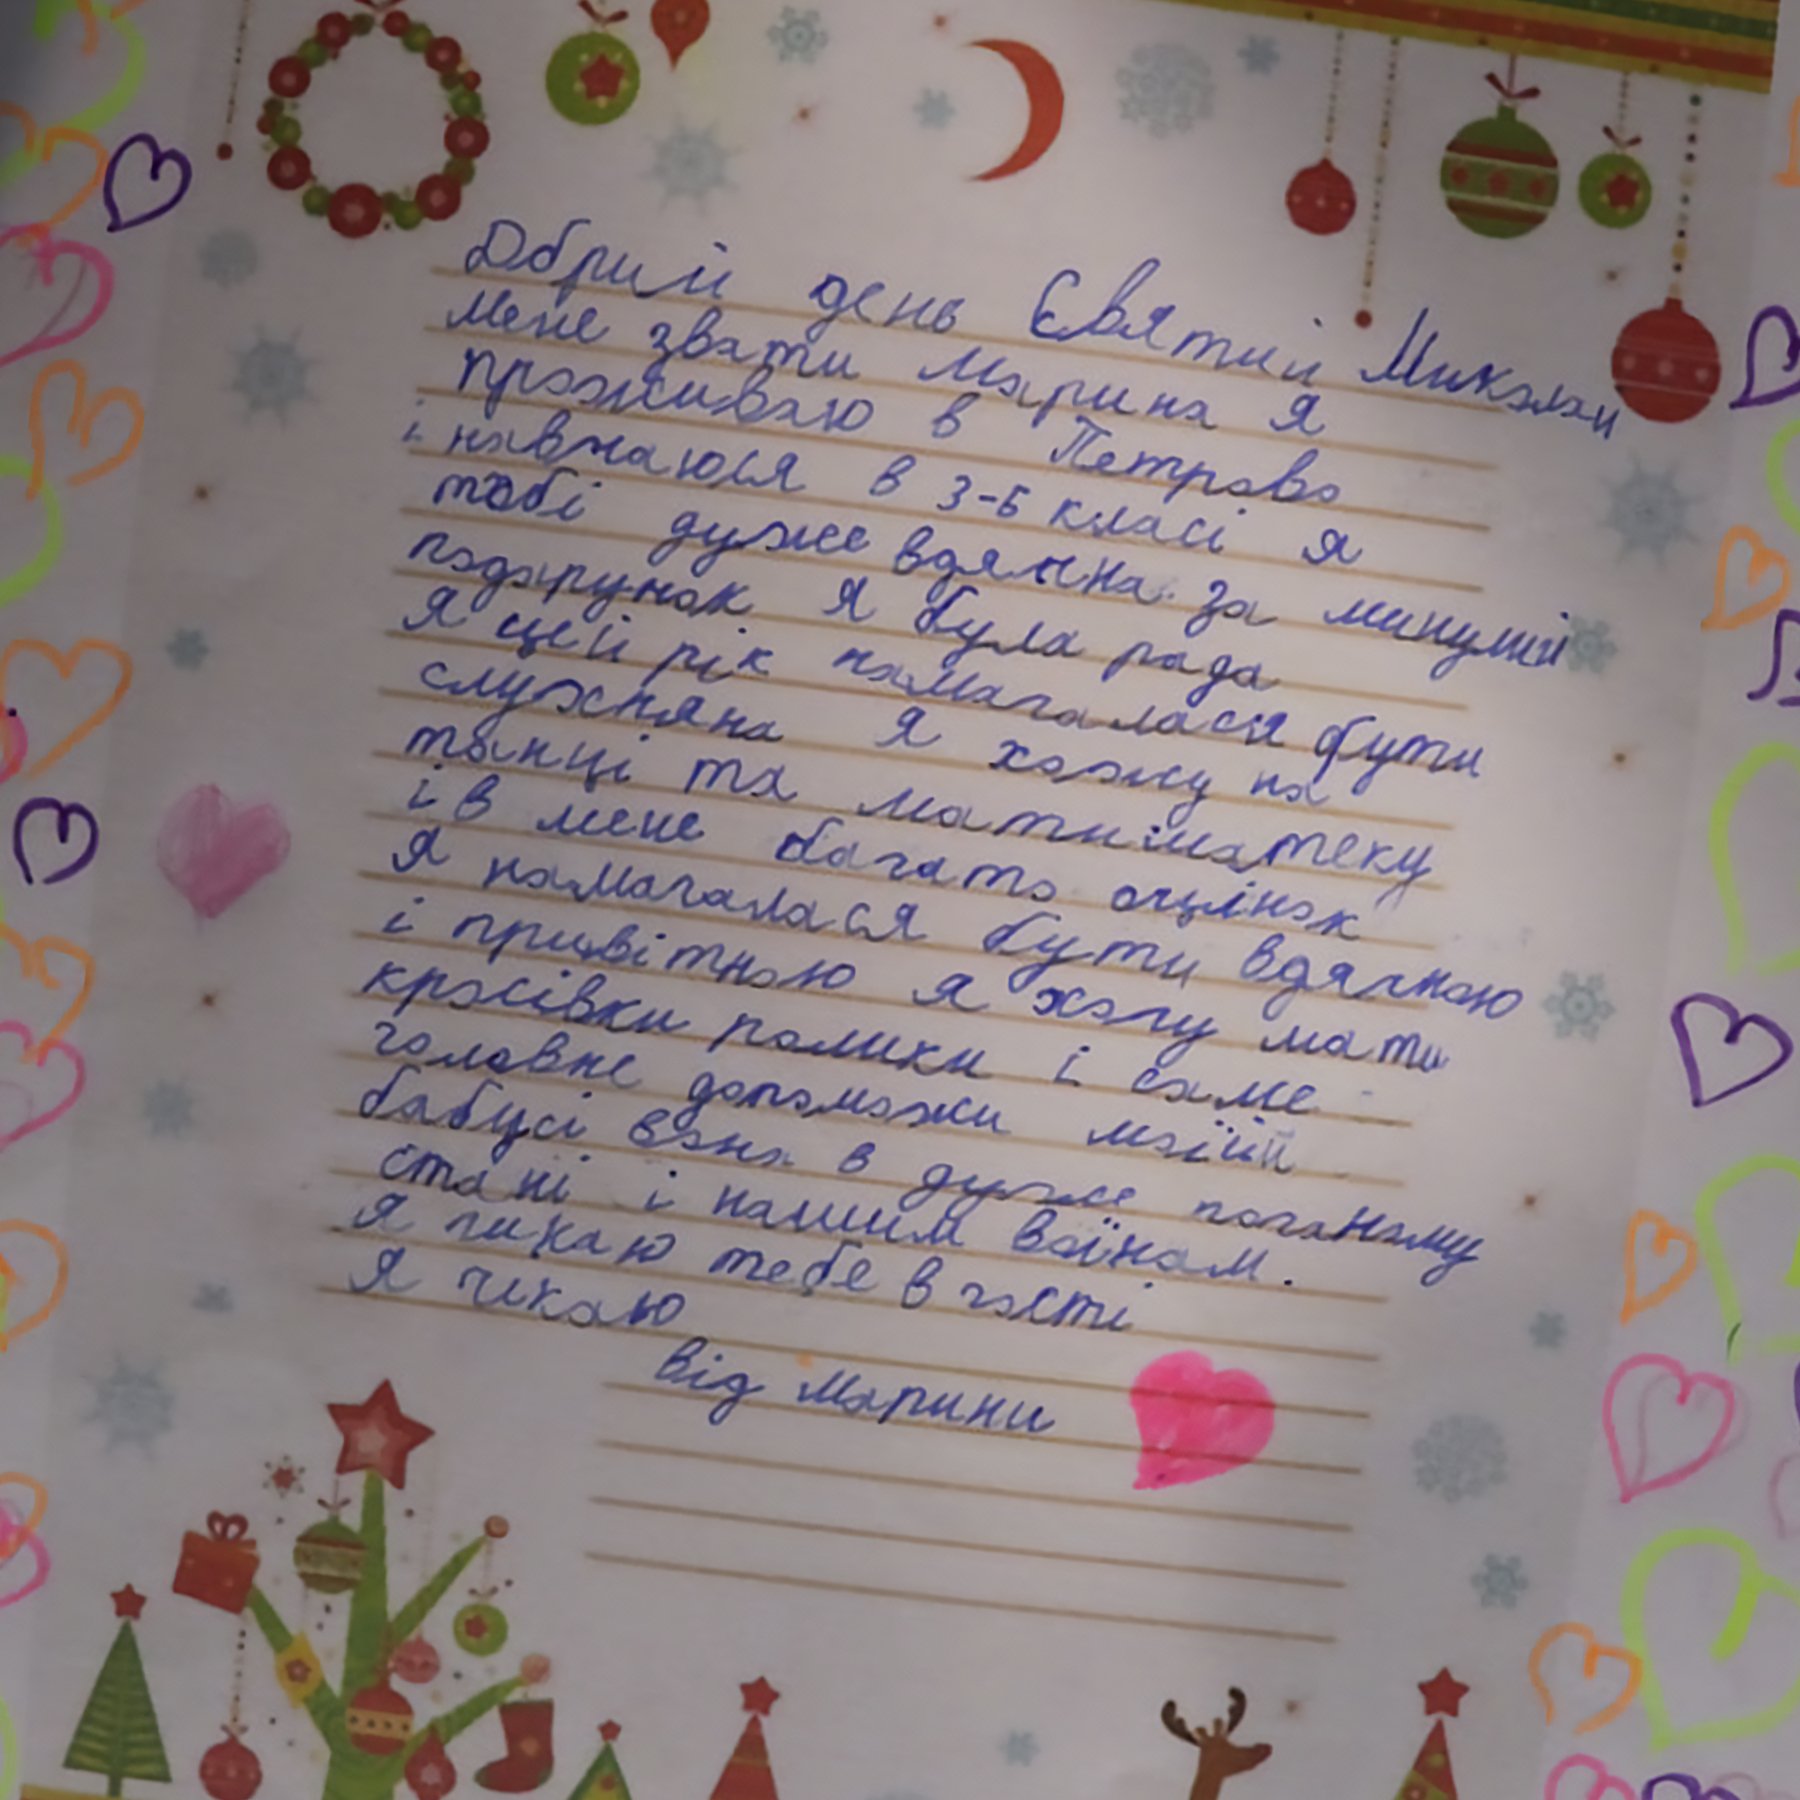 Добрий день Святий Миколаи
мене звати Марина я
проживаю в Петрово
і навчаюся в 3-Б класі я
тобі дуже вдячна за минулий
подарунок я була рада
я цей рік намагалася бути
слухняна я хожу на
танці та матиматеку
і в мене багато оцінок
я намагалася бути вдячною
і привітною я хочу мати
кросівки ролики і саме
головне допоможи моїй
бабусі вона в дуже поганому
стані і нашим воїнам.
я чикаю тебе в гості
я чикаю
від Марини